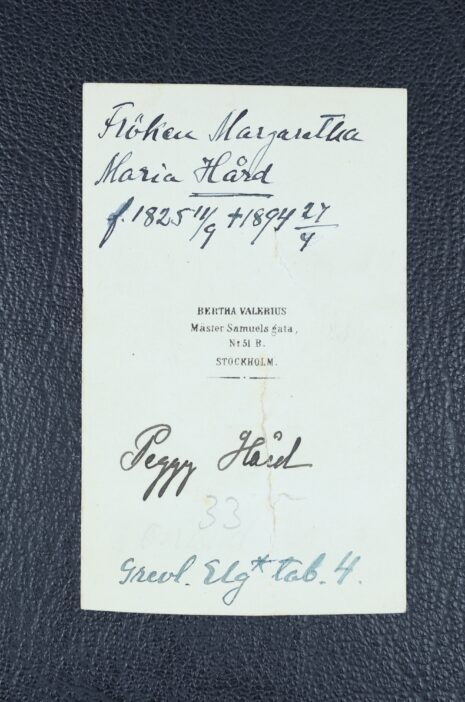 Fröken Margaretha
Maria Hård
f. 1825 11/9 + 1894 27/4
BERTHA VALERIUS
Mäster Samuels gata,
No 51 B.
STOCKHOLM.
Peggy Hård
33
Grevl. Elg* tab. 4.